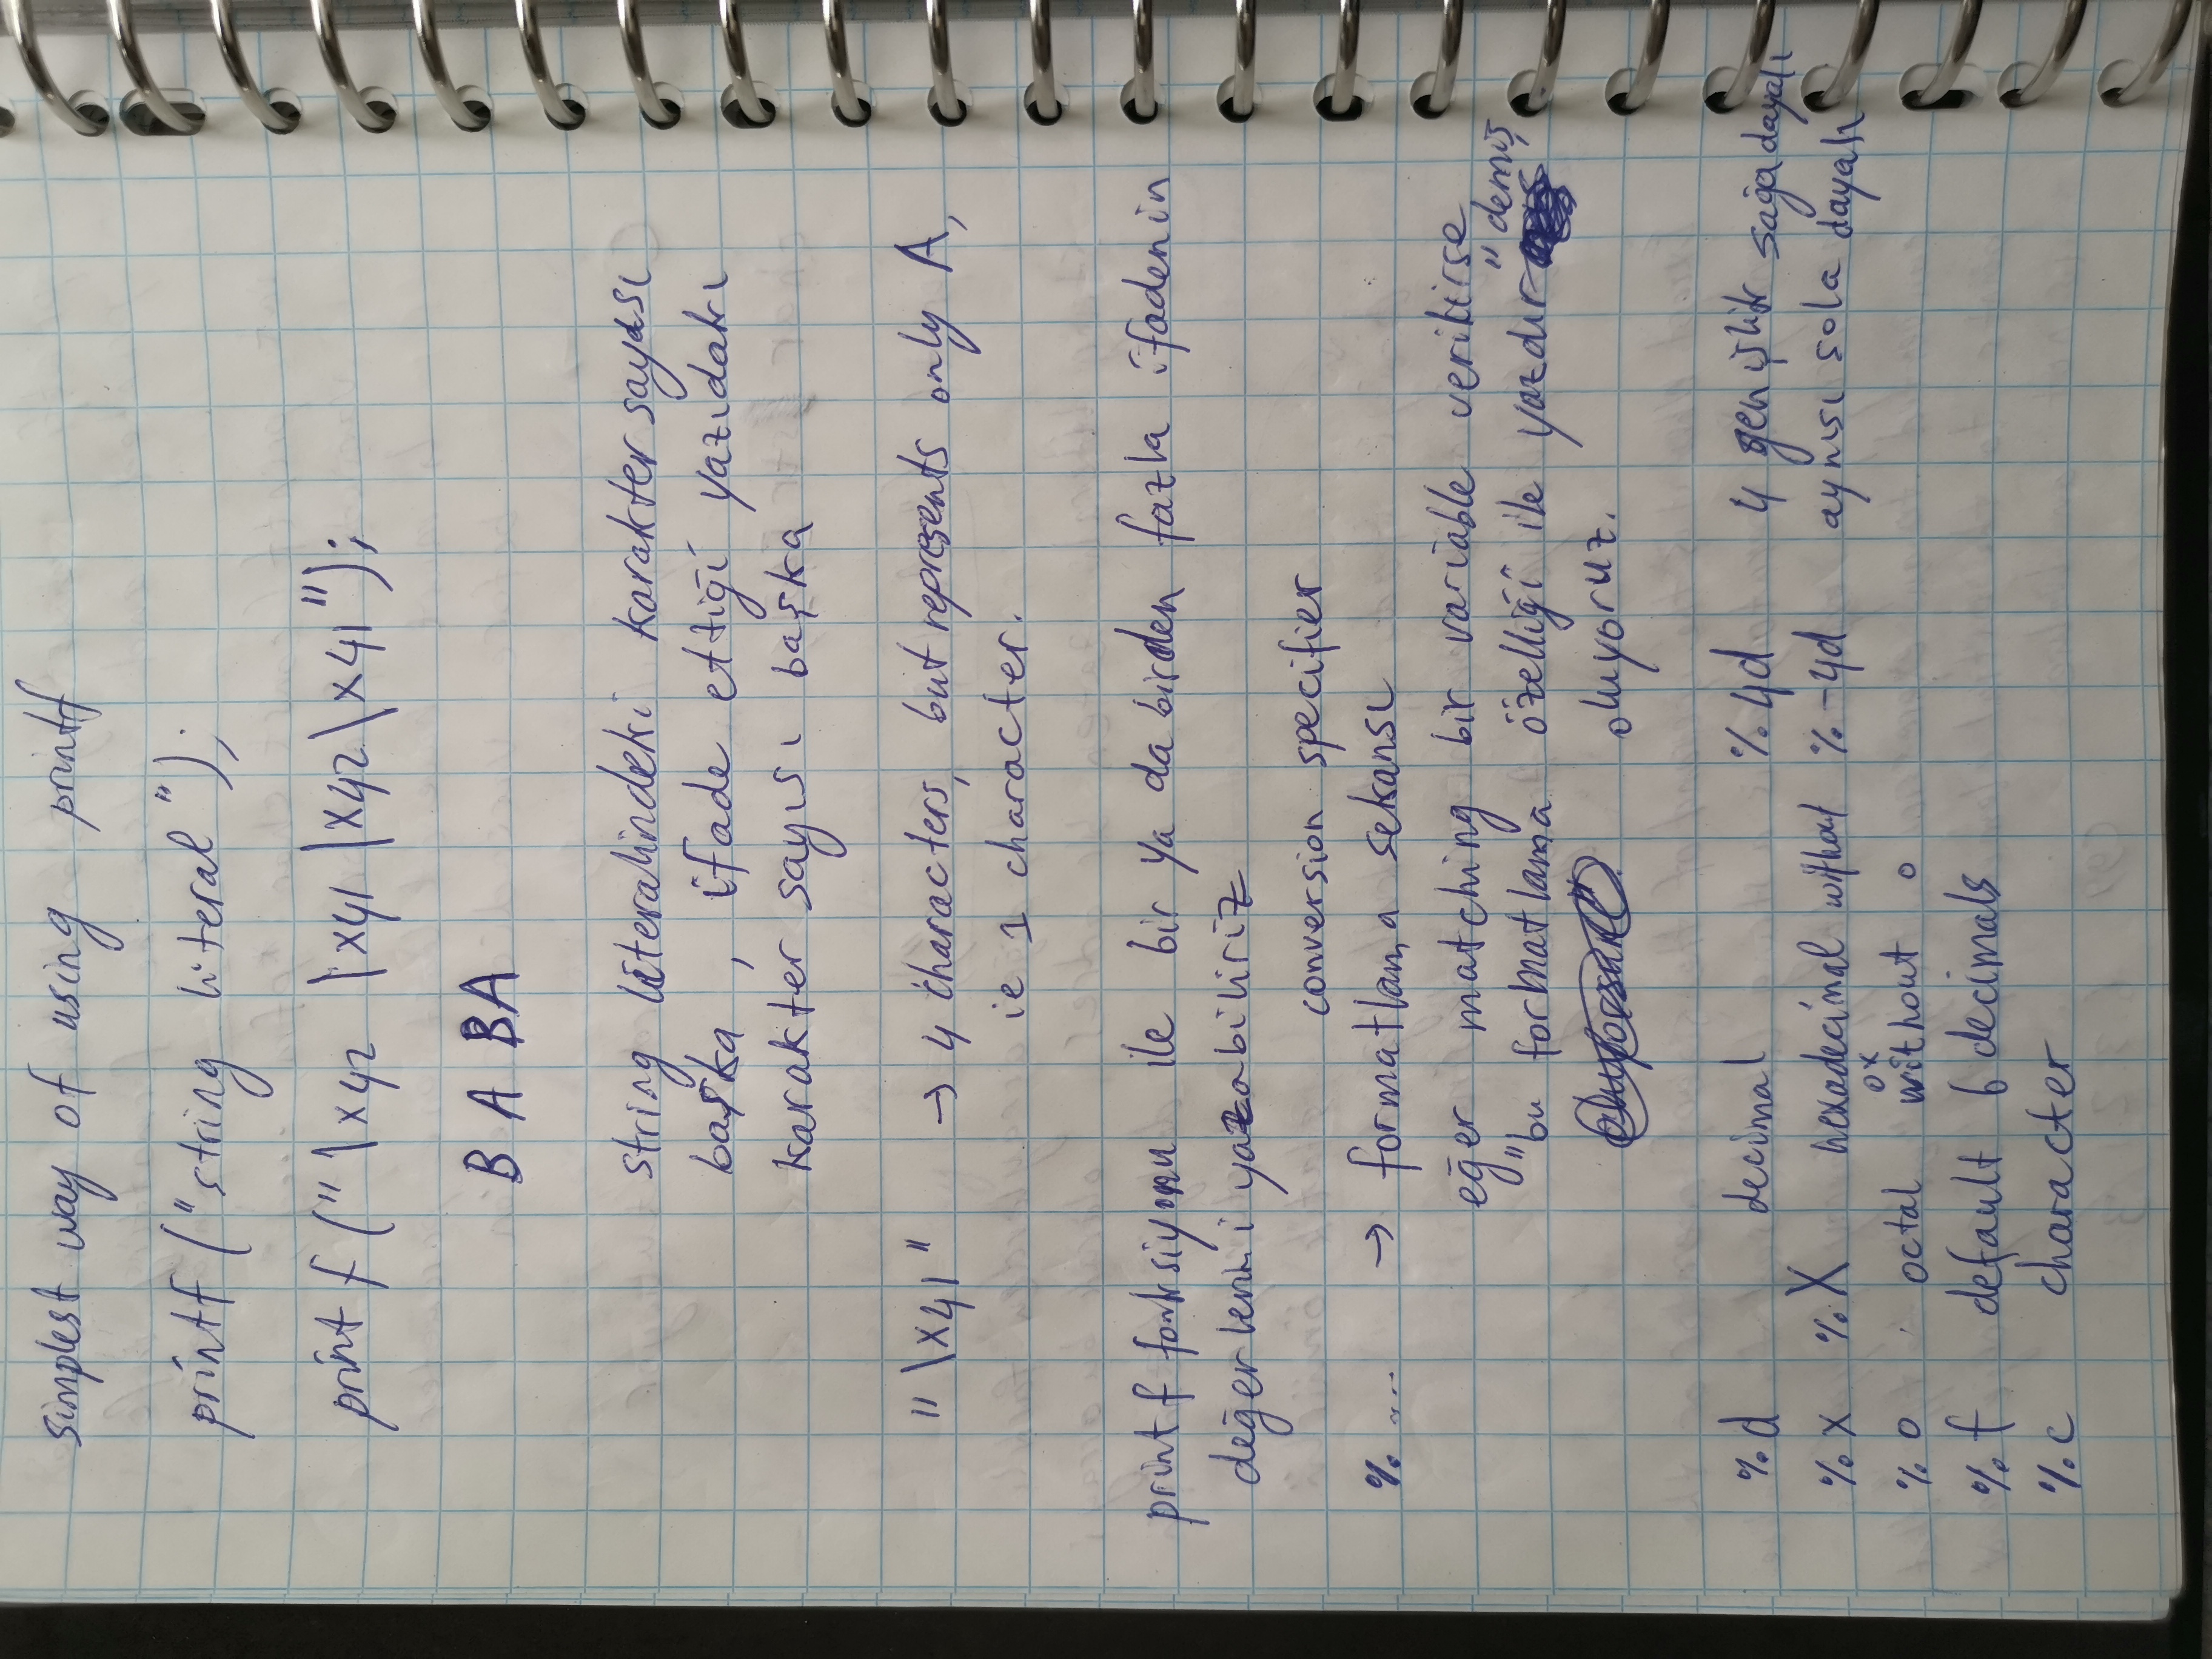 simplest way of using printf
printf ("string literal");
printf ("\x42 \x41 \x42\x41");
B A BA
string literalindeki karakter sayısı
başka , ifade ettiği yazıdaki
karakter sayısı başka
"\x41" → 4 characters, but represents only A,
ie 1 character.
printf fonksiyonu ile bir ya da birden fazla ifadenin
değerlerini yazabiliriz
conversion specifier
%.... → formatlama sekansı
eğer matching bir variable verilirse
" demiş
"bu formatlama özelliği ile yazdır
oluyoruz.
%d decimal %4d 4 genişlik sağa dayalı
%x %X hexadecimal without %-4d aynısı sola dayalı
0x
%o octal without 0
%f default 6 decimals
%c character